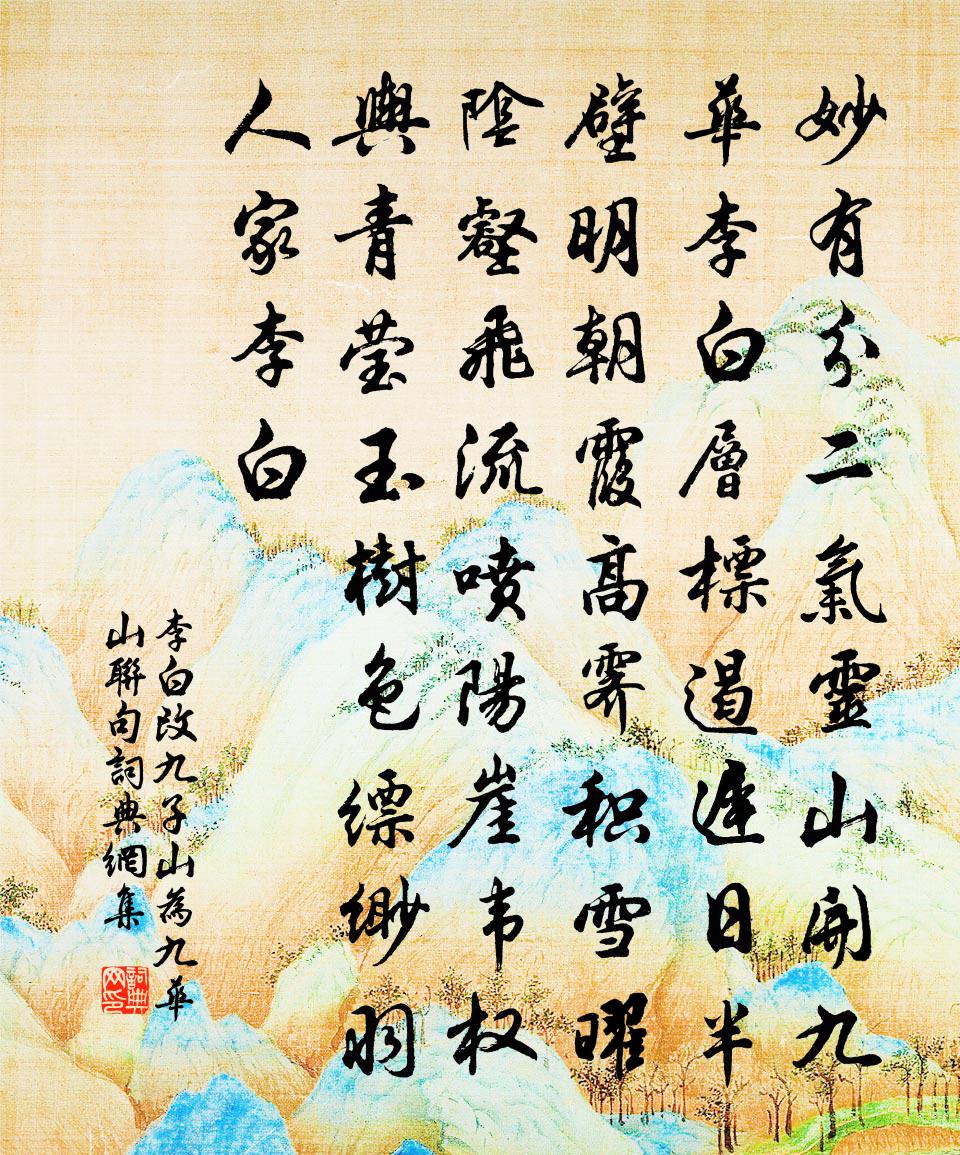 妙有分二氣靈山開九
華李白層標遏遲日半
壁明朝霞高霁积雪曜
陰壑飛流喷陽崖韦权
輿青莹玉樹色缥缈羽
人家李白
李白改九子山為九華
山聯句詞典網集
詞典
网印